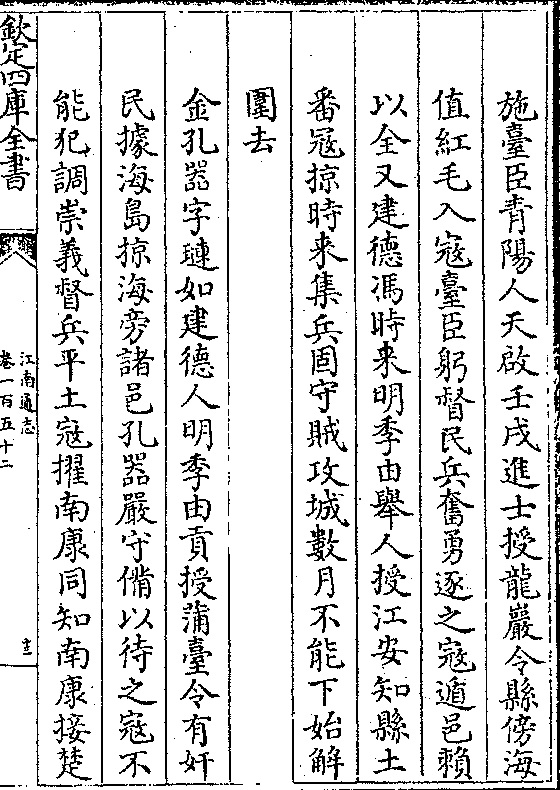 施臺臣青陽人天啟壬戌進士授龍巖令縣傍海
值紅毛入寇臺臣躬督民兵奮勇逐之寇遁邑賴
以全又建德馮時来明季由舉人授江安知縣土
番寇掠時来集兵固守賊攻城數月不能下始解
圍去
金孔器字璉如建德人明季由貢授蒲臺令有奸
民據海島掠海旁諸邑孔器嚴守備以待之寇不
能犯調崇義督兵平土寇擢南康同知南康接楚
欽定四庫全書
江南通志
卷一百五十二
十三